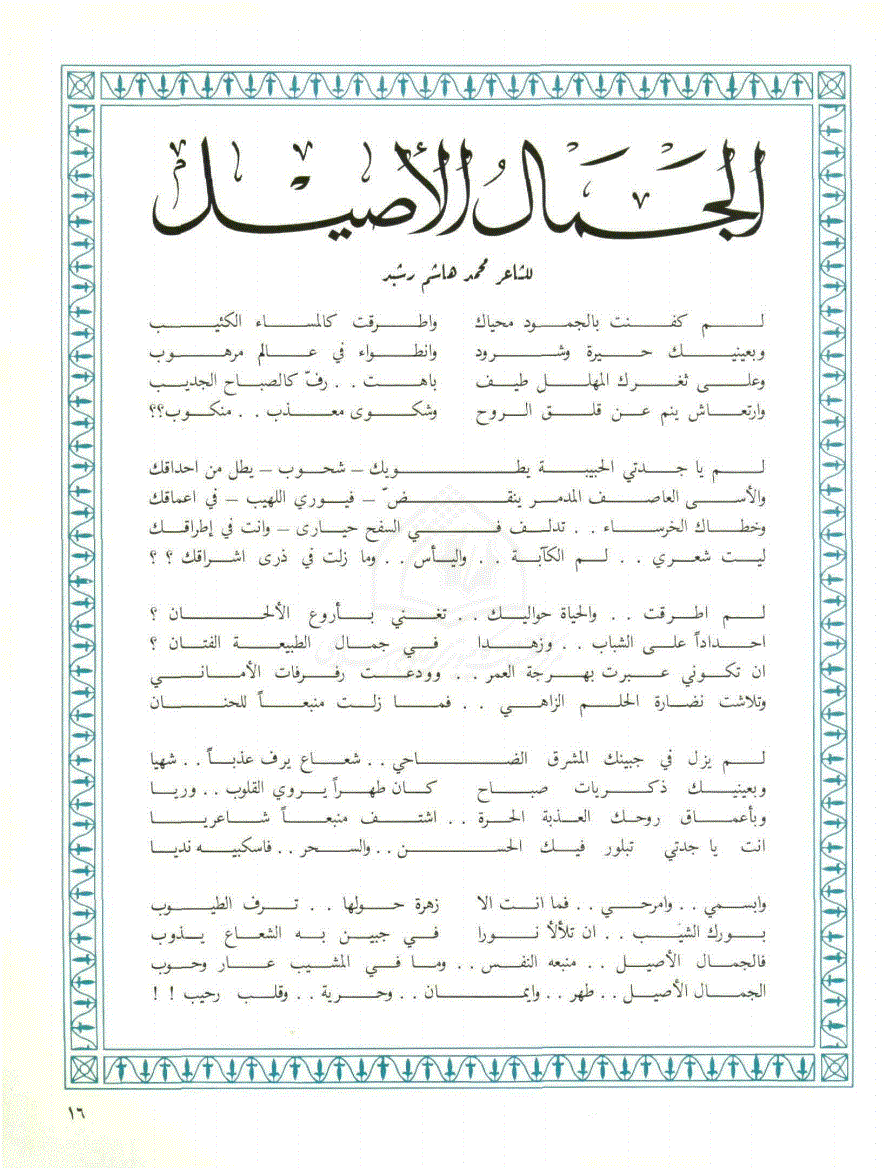 الجمال الأصيل
للشاعر محمد هاشم رشيد
لم كفنت بالجمود محياك واطرقت كالمساء الكئيب
وبعينيك حيرة وشرود وانطواء في عالم مرهوب
وعلى ثغرك المهلل طيف باهت .. رفّ كالصباح الجديب
وارتعاش ينم عن قلق الروح وشكوى معذب .. منكوب؟؟
لم يا جدتي الحبيبة يطويك – شحوب – يطل من احداقك
والأسى العاصف المدمر ينقضّ – فيوري اللهيب – في اعماقك
وخطاك الخرساء .. تدلف في السفح حيارى – وانت في إطراقك
ليت شعري .. لم الكآبة .. واليأس .. وما زلت في ذرى اشراقك ؟ ؟
لم اطرقت .. والحياة حواليك .. تغني بأروع الألحان ؟
احداداً على الشباب .. وزهدا في جمال الطبيعة الفتان ؟
ان تكوني عبرت بهرجة العمر .. وودعت رفرفات الأماني
وتلاشت نضارة الحلم الزاهي .. فما زلت منبعاً للحنان
لم يزل في جبينك المشرق الضاحي .. شعاع يرف عذباً .. شهيا
وبعينيك ذكريات صباح كان طهراً يروي القلوب .. وريا
وبأعماق روحك العذبة الحرة .. اشتف منبعاً شاعريا
انت يا جدتي تبلور فيك الحسن .. والسحر .. فاسكبيه نديا
وابسمي .. وامرحي .. فما انت الا زهرة حولها .. ترف الطيوب
بورك الشيب .. ان تلألأ نورا في جبين به الشعاع يذوب
فالجمال الأصيل .. منبعه النفس .. وما في المشيب عار وحوب
الجمال الأصيل .. طهر .. وايمان .. وحرية .. وقلب رحيب ! !
١٦